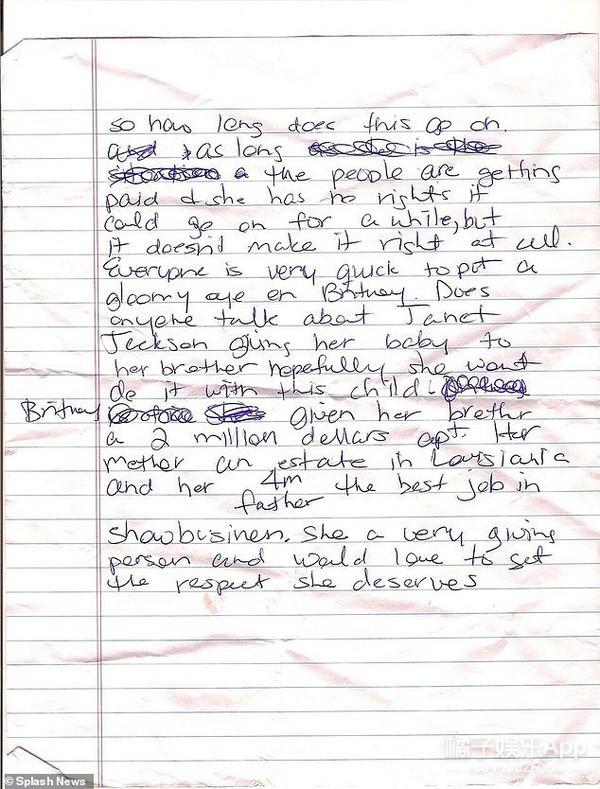 so how long does this go on.
as long
the people are getting
paid & she has no rights it
could go on for a while, but
it doesn't make it right at all.
Everyone is very quick to put a
gloomy eye on Britney. Does
anyone talk about Janet
Jeckson giving her baby to
her brother hopefully she wont
do it with this child.
Britney given her brother
a 2 million dollars apt. Her
mother an estate in Louisiania
and her 4m the best job in
father
showbusiness. She a very giving
person and would love to get
the respect she deserves
橘子娱乐App
© Splash News